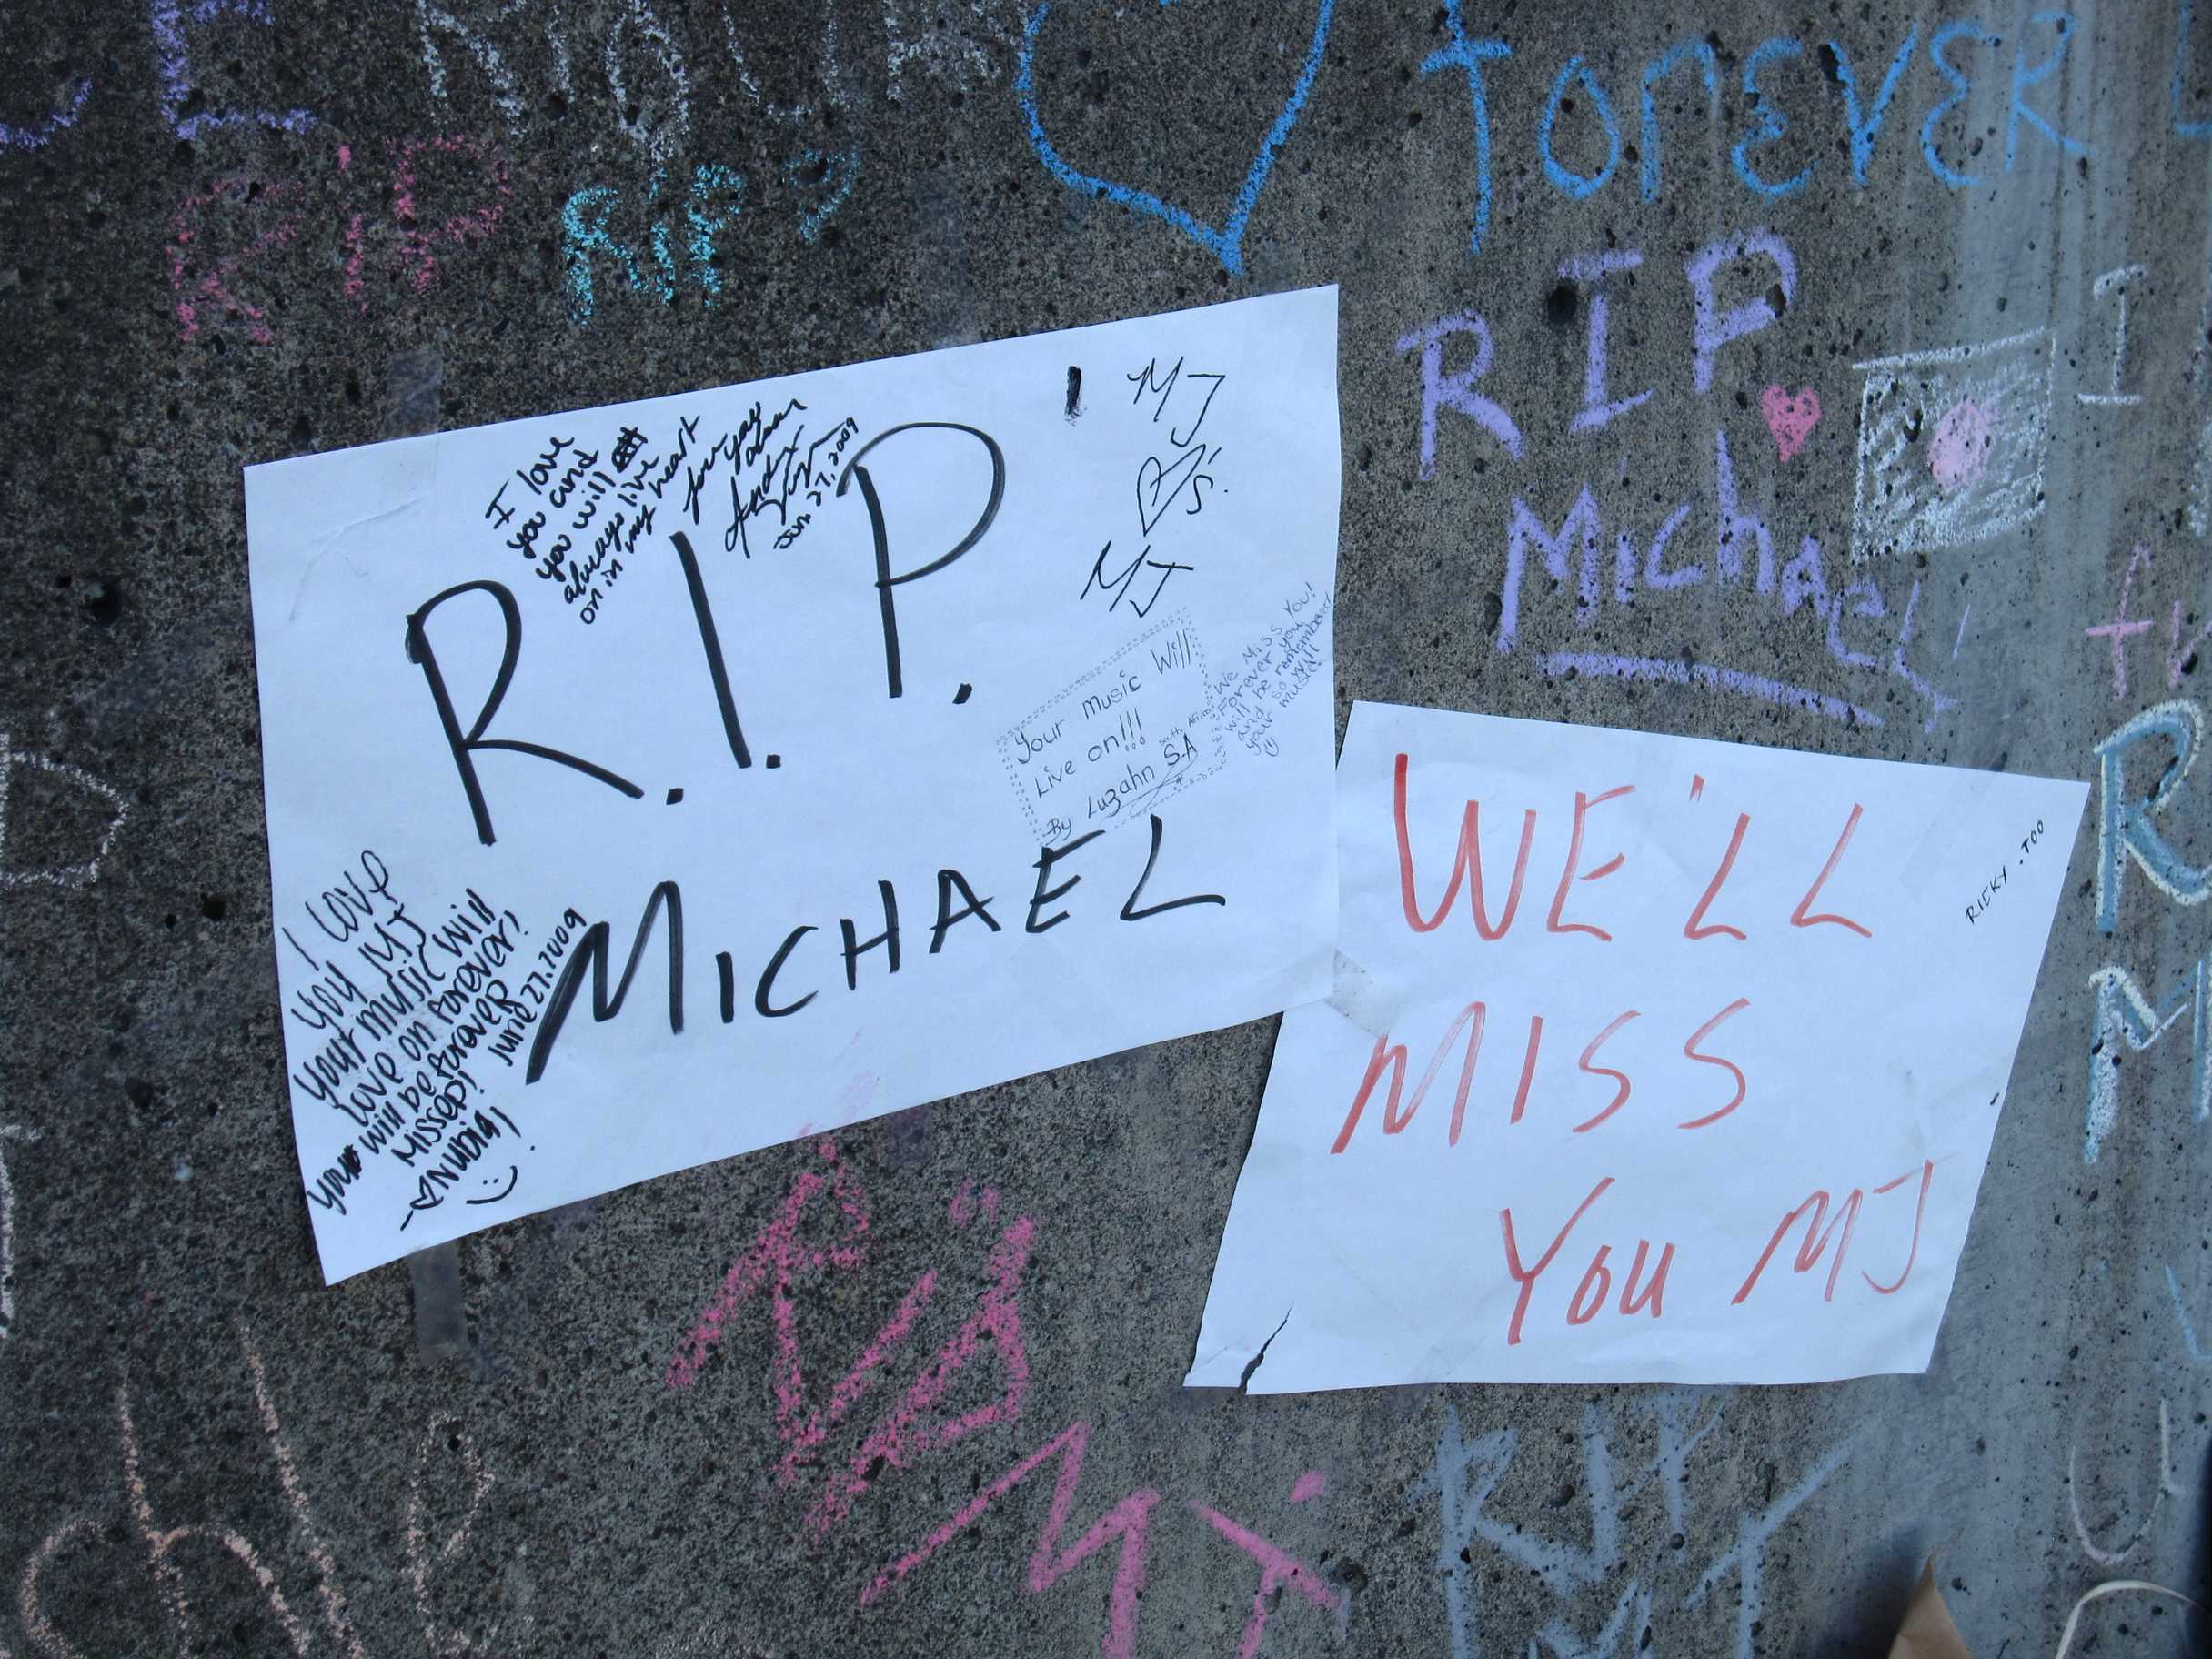 forever
RIP
RIP
RIP
Michael
I love
you and
you will
always live
on in my heart
Jun. 27, 2009
MJ
MJ
R.I.P.
Your Music Will
Live on!!!
By Luzahn S.A
South Africa
We Miss You!
Forever you
will be remembered
and so will
your music
MICHAEL
I LOVE
YOU MJ
your music will
Love on forever!
your will be forever
Missed! June 27. 2009
NUDIA!
WE'LL
MISS
YOU MJ
RICKY . TOO
R
M
RIP
MJ
RIP
MJ